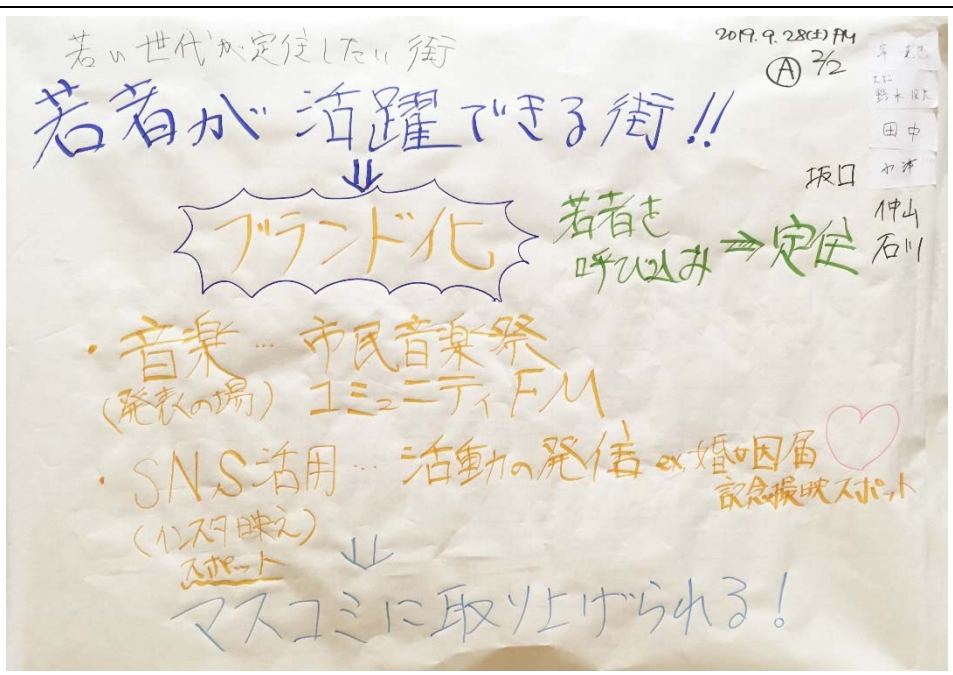 若い世代が定住したい街
2019.9.28(土)AM
Ⓐ 2/2
若者が活躍できる街!!
⇓
ブランド化
若者を
呼び込み⇒定住
田中
坂口
仲山
石川
・音楽…市民音楽祭
(発表の場) コミュニティFM
・SNS活用…活動の発信 ex婚姻届
記念撮映スポット
(インスタ映え)
スポット
⇓
マスコミに取り上げられる!